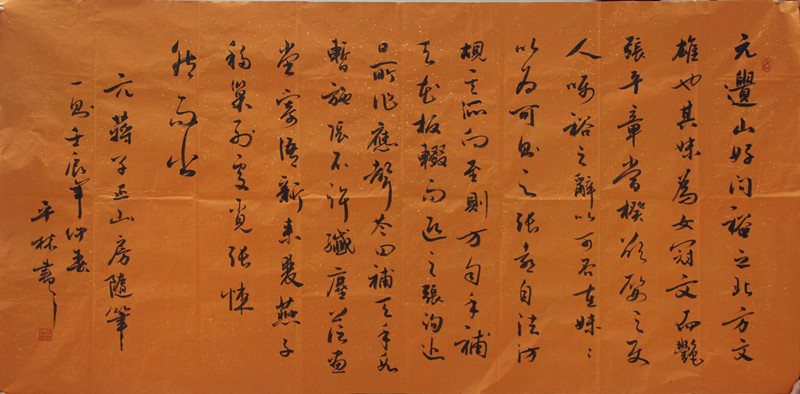 元遺山好問裕之北方文
雄也其妹為女冠文而艷
張平章當揆欲娶之使
人囑裕之辭以可否在妹〻
以為可則之張喜自往訪
覘其所向至則方自手補
天花板輟而迎之張詢近
日所作應聲答曰補天手段
暫施張不許纖塵落畫
堂寄語新來雙燕子
移巢別處覓張悚
然而出
元蔣子正山房隨筆
一則壬辰年仲春
平林書